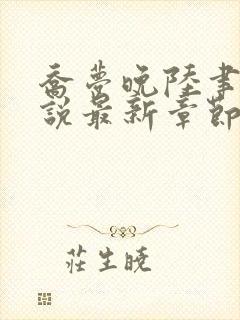 喬夢晚陸事
說最新章節
莊生曉